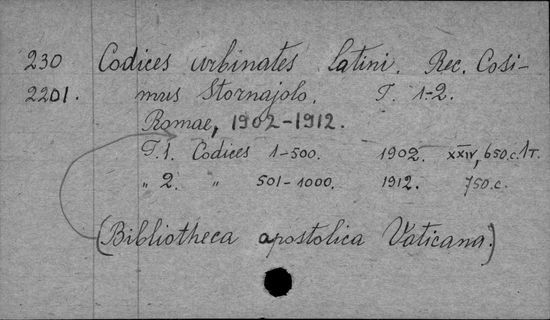 230 Codices urbinates latini. Rec. Cosi-
2201. mus Stornajolo. T. 1-2.
Romae, 1902-1912.
T. 1. Codices 1-500. 1902. XXIV, 650.c. 1 т.
„ 2. „ 501-1000. 1912. 750.c.
(Bibliotheca apostolica Vaticana.)